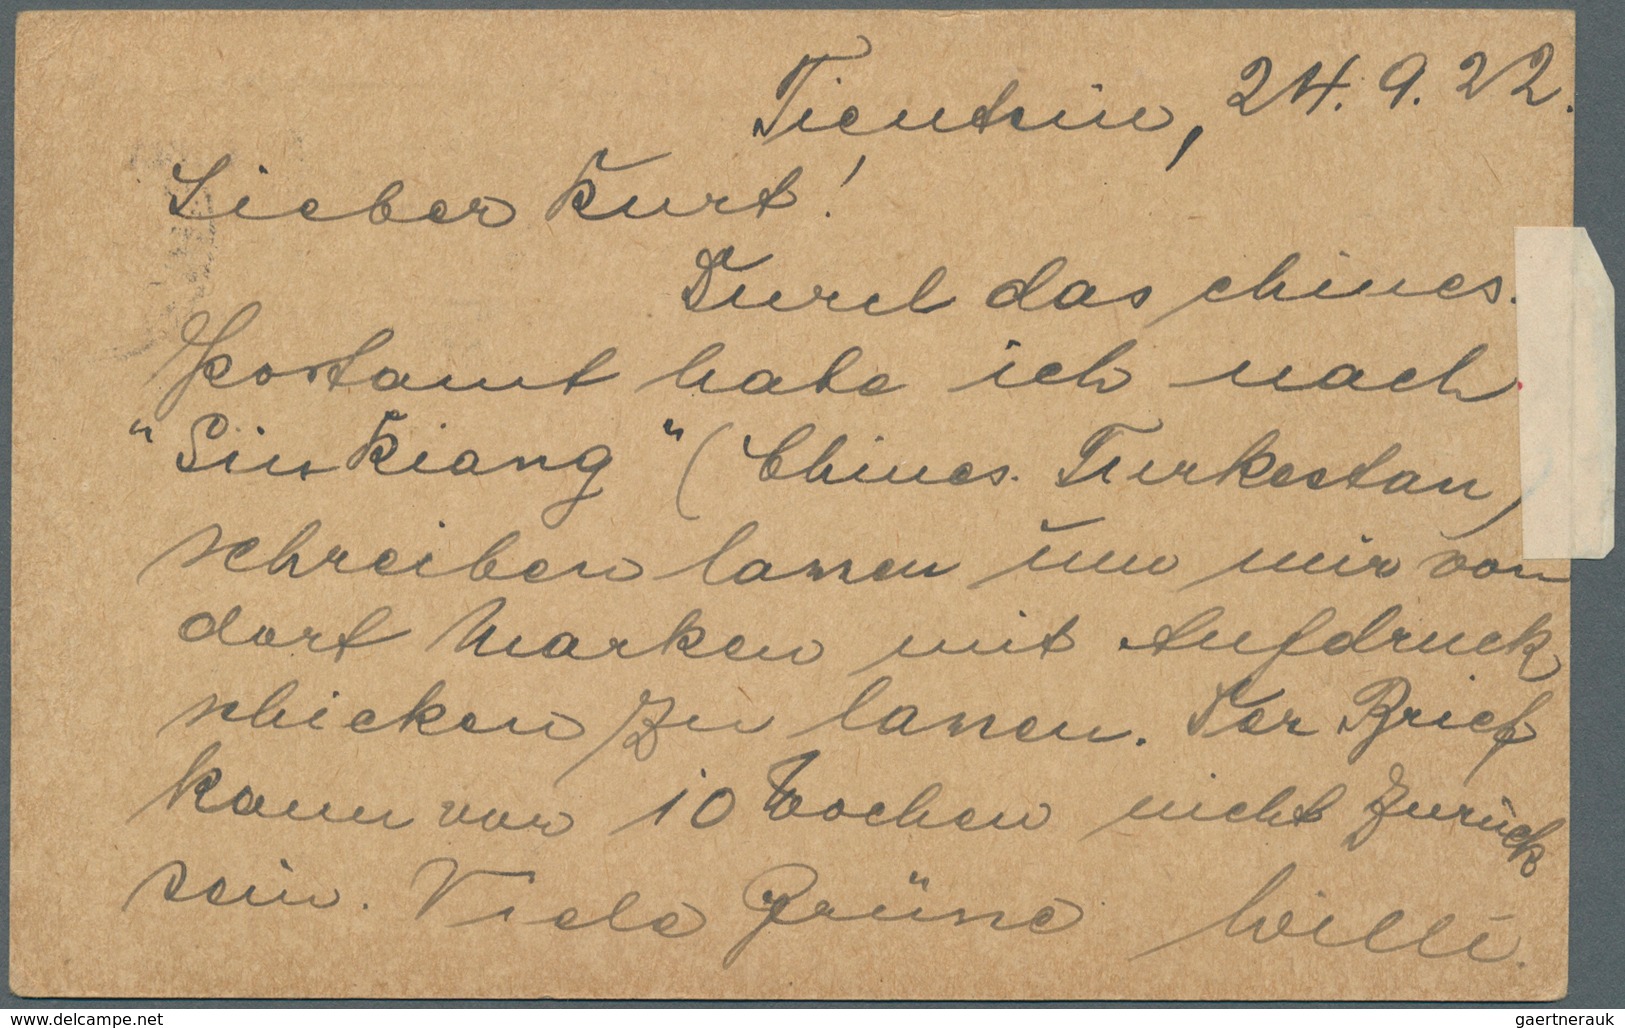 Tientsin, 24.9.22.
Lieber Kurt!
Durch das chines.
Postamt habe ich nach
"Sinkiang" (Chines. Turkestan)
schreiben lassen um mir von
dort Marken mit Aufdruck
schicken zu lassen. Der Brief
kann vor 10 Wochen nicht zurück
sein. Viele Grüsse Willi.
www.delcampe.net
gaertnerauk